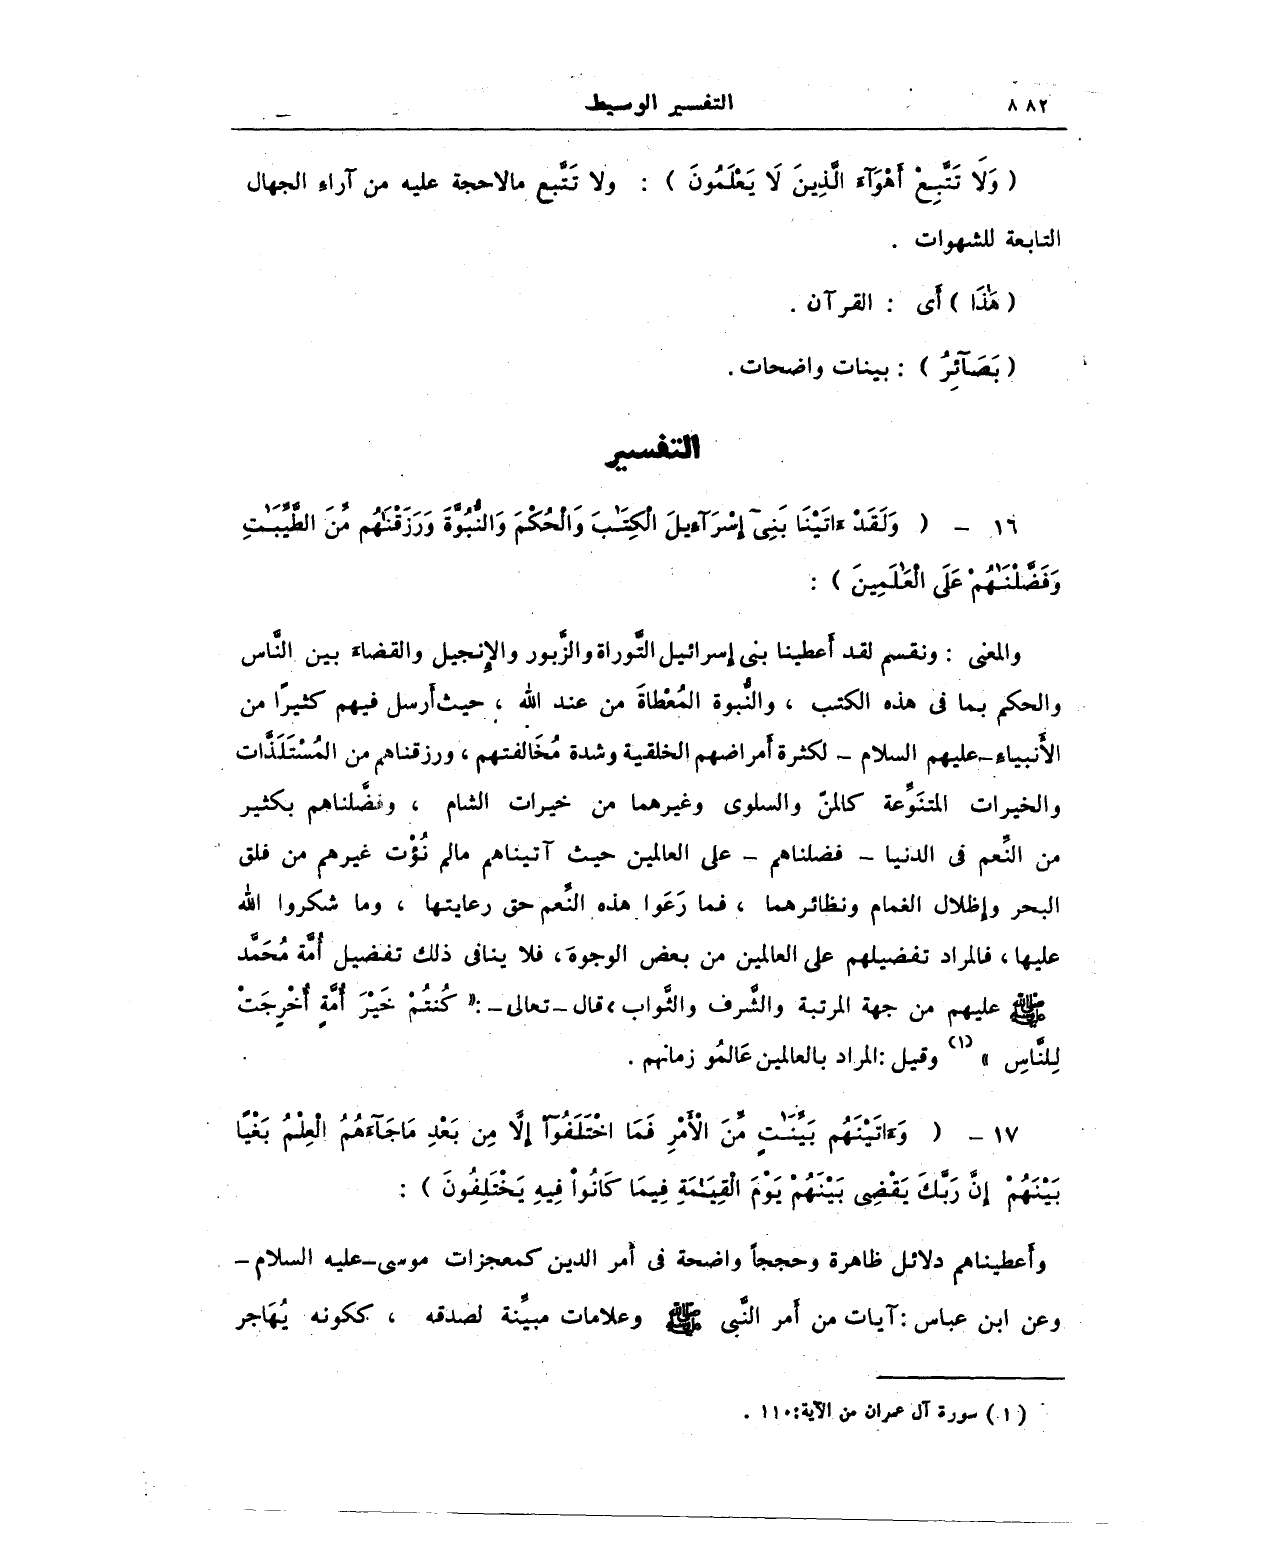 ٨٨٢
التفسير الوسيط
( وَلَا تَتَّبِعْ أَهْوَآءَ الَّذِينَ لَا يَعْلَمُونَ ) : ولا تَتَّبع مالاحجة عليه من آراء الجهال
التابعة للشهوات .
( هَٰذَا ) أَى : القرآن .
( بَصَآئِرُ ) : بينات واضحات .
التفسير
١٦ ــ ( وَلَقَدْ ءَاتَيْنَا بَنِىٓ إِسْرَآءِيلَ الْكِتَـٰبَ وَالْحُكْمَ وَالنُّبُوَّةَ وَرَزَقْنَـٰهُم مِّنَ الطَّيِّبَـٰتِ
وَفَضَّلْنَـٰهُمْ عَلَى الْعَـٰلَمِينَ ) :
والمعنى : ونقسم لقد أعطينا بنى إسرائيل التَّوراة والزَّبور والإنجيل والقضاءَ بين النَّاس
والحكم بما فى هذه الكتب ، والنُّبوة المُعْطاةَ من عند الله ، حيث أرسل فيهم كثيرًا من
الأَنبياء ــ عليهم السلام ــ لكثرة أمراضهم الخلقية وشدة مُخَالفتهم ، ورزقناهم من المُسْتَلَذَّات
والخيرات المتنَوِّعة كالمنّ والسلوى وغيرهما من خيرات الشام ، وفضَّلناهم بكثير
من النِّعم فى الدنيا ــ فضلناهم ــ على العالمين حيث آتيناهم مالم نُؤْت غيرهم من فلق
البحر وإظلال الغمام ونظائرهما ، فما رَعَوا هذه النِّعم حق رعايتها ، وما شكروا الله
عليها ، فالمراد تفضيلهم على العالمين من بعض الوجوه ، فلا ينافى ذلك تفضيل أُمَّة مُحَمَّد
ﷺ عليهم من جهة المرتبة والشَّرف والثَّواب ، قال ــ تعالى ــ : « كُنتُمْ خَيْرَ أُمَّةٍ أُخْرِجَتْ
لِلنَّاسِ » (١) وقيل : المراد بالعالمين عَالمُو زمانهم .
١٧ ــ ( وَءَاتَيْنَـٰهُم بَيِّنَـٰتٍ مِّنَ الْأَمْرِ فَمَا اخْتَلَفُوٓاْ إِلَّا مِن بَعْدِ مَاجَآءَهُمُ الْعِلْمُ بَغْيًا
بَيْنَهُمْ إِنَّ رَبَّكَ يَقْضِى بَيْنَهُمْ يَوْمَ الْقِيَـٰمَةِ فِيمَا كَانُواْ فِيهِ يَخْتَلِفُونَ ) :
وأَعطيناهم دلائل ظاهرة وحججاً واضحة فى أمر الدين كمعجزات موسى ــ عليه السلام ــ
وعن ابن عباس : آيات من أَمر النَّبى ﷺ وعلامات مبيِّنة لصدقه ، ككونه يُهَاجر
( ١ ) سورة آل عمران من الآية : ١١٠ .